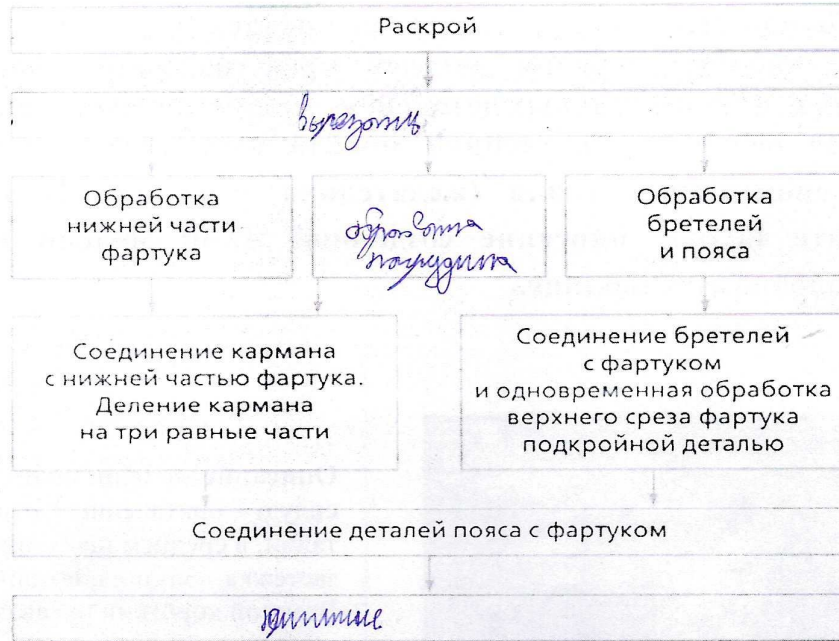 Раскрой
вырезать
Обработка
нижней части
фартука
обработка
нагрудника
Обработка
бретелей
и пояса
Соединение кармана
с нижней частью фартука.
Деление кармана
на три равные части
Соединение бретелей
с фартуком
и одновременная обработка
верхнего среза фартука
подкройной деталью
Соединение деталей пояса с фартуком